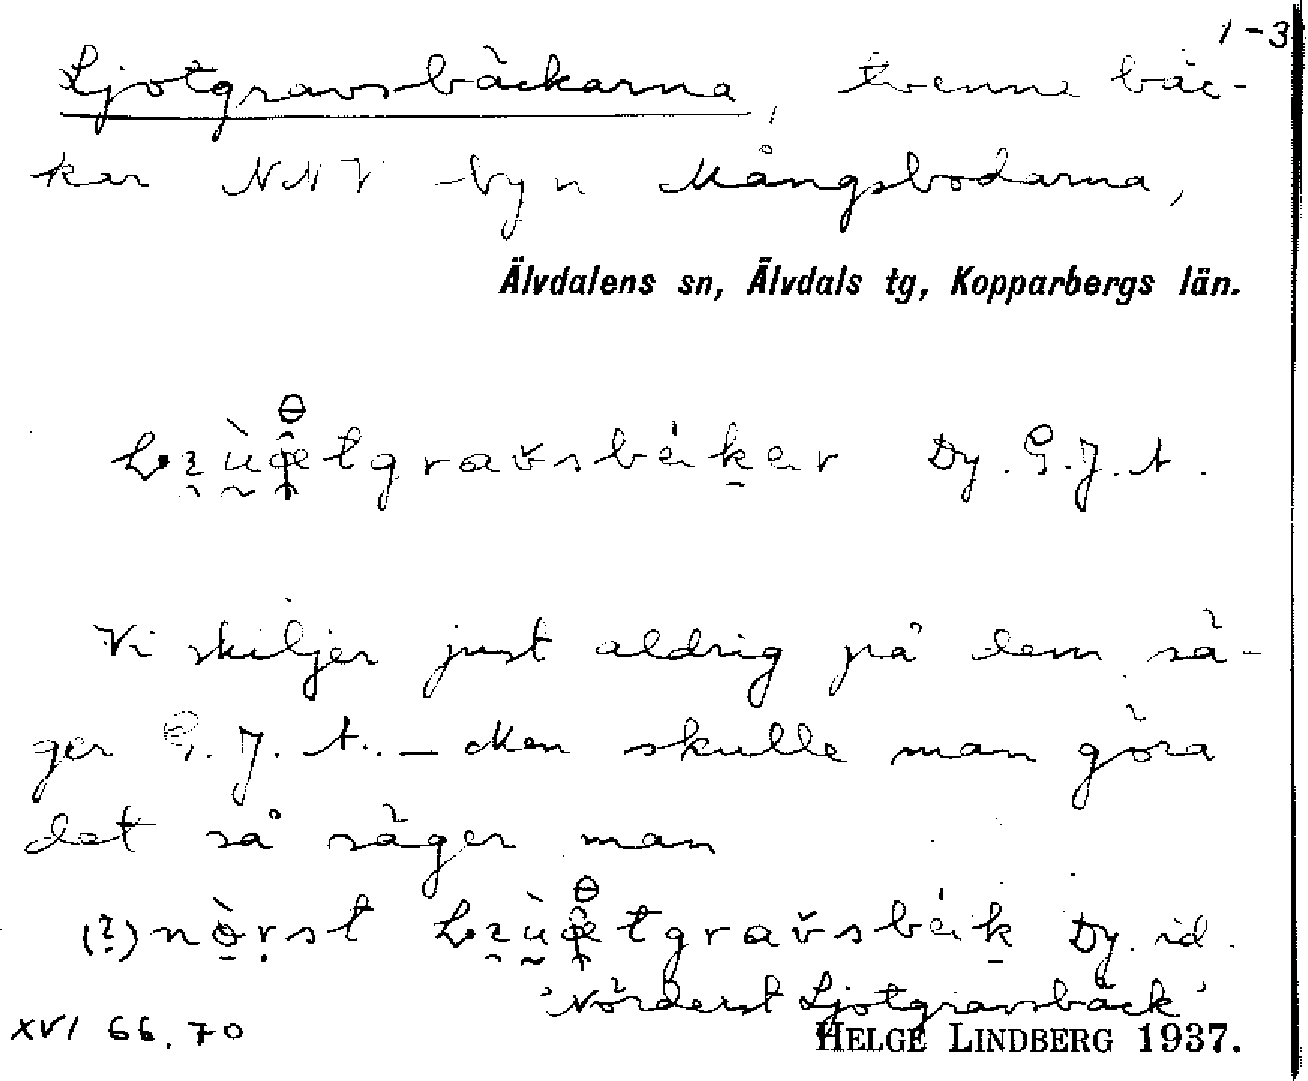 1-3
Ljotgravsbäckarna, tvenne bäc-
kar NNV byn Mångsbodarna,
Älvdalens sn, Älvdals tg, Kopparbergs län.
Dy. G. J. A.
Vi skiljer just aldrig på dem sä-
ger G. J. A. – Men skulle man göra
det så säger man
(?) Dy. id.
'Nörderst Ljotgravsbäck'
XVI 66. 70 HELGE LINDBERG 1937.